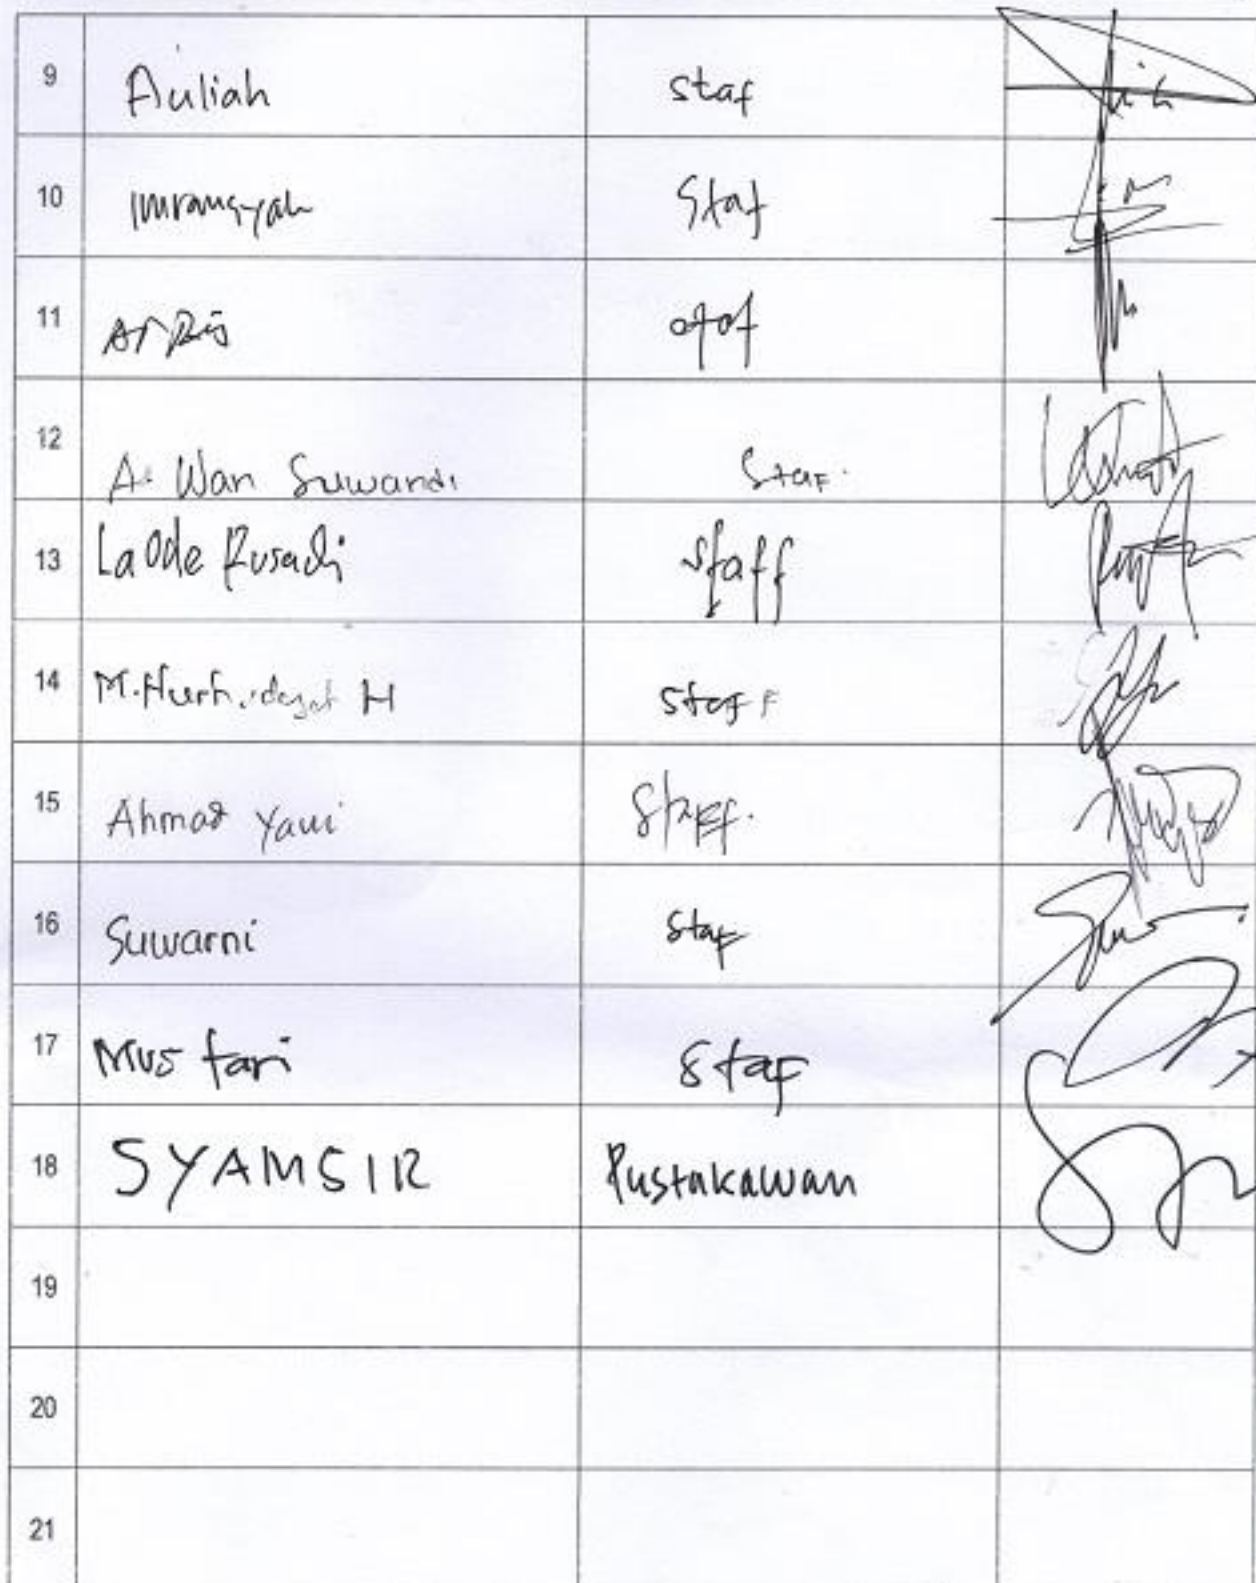 9 Auliah staf
10 Imransyah Staf
11 staf
12 A. Wan Suwandi Staf.
13 La Ode Rusadi staff
14 M. Nurhidayat H staff
15 Ahmad Yani Staff.
16 Suwarni Staf
17 Mustari Staf
18 SYAMSIR Pustakawan
19
20
21